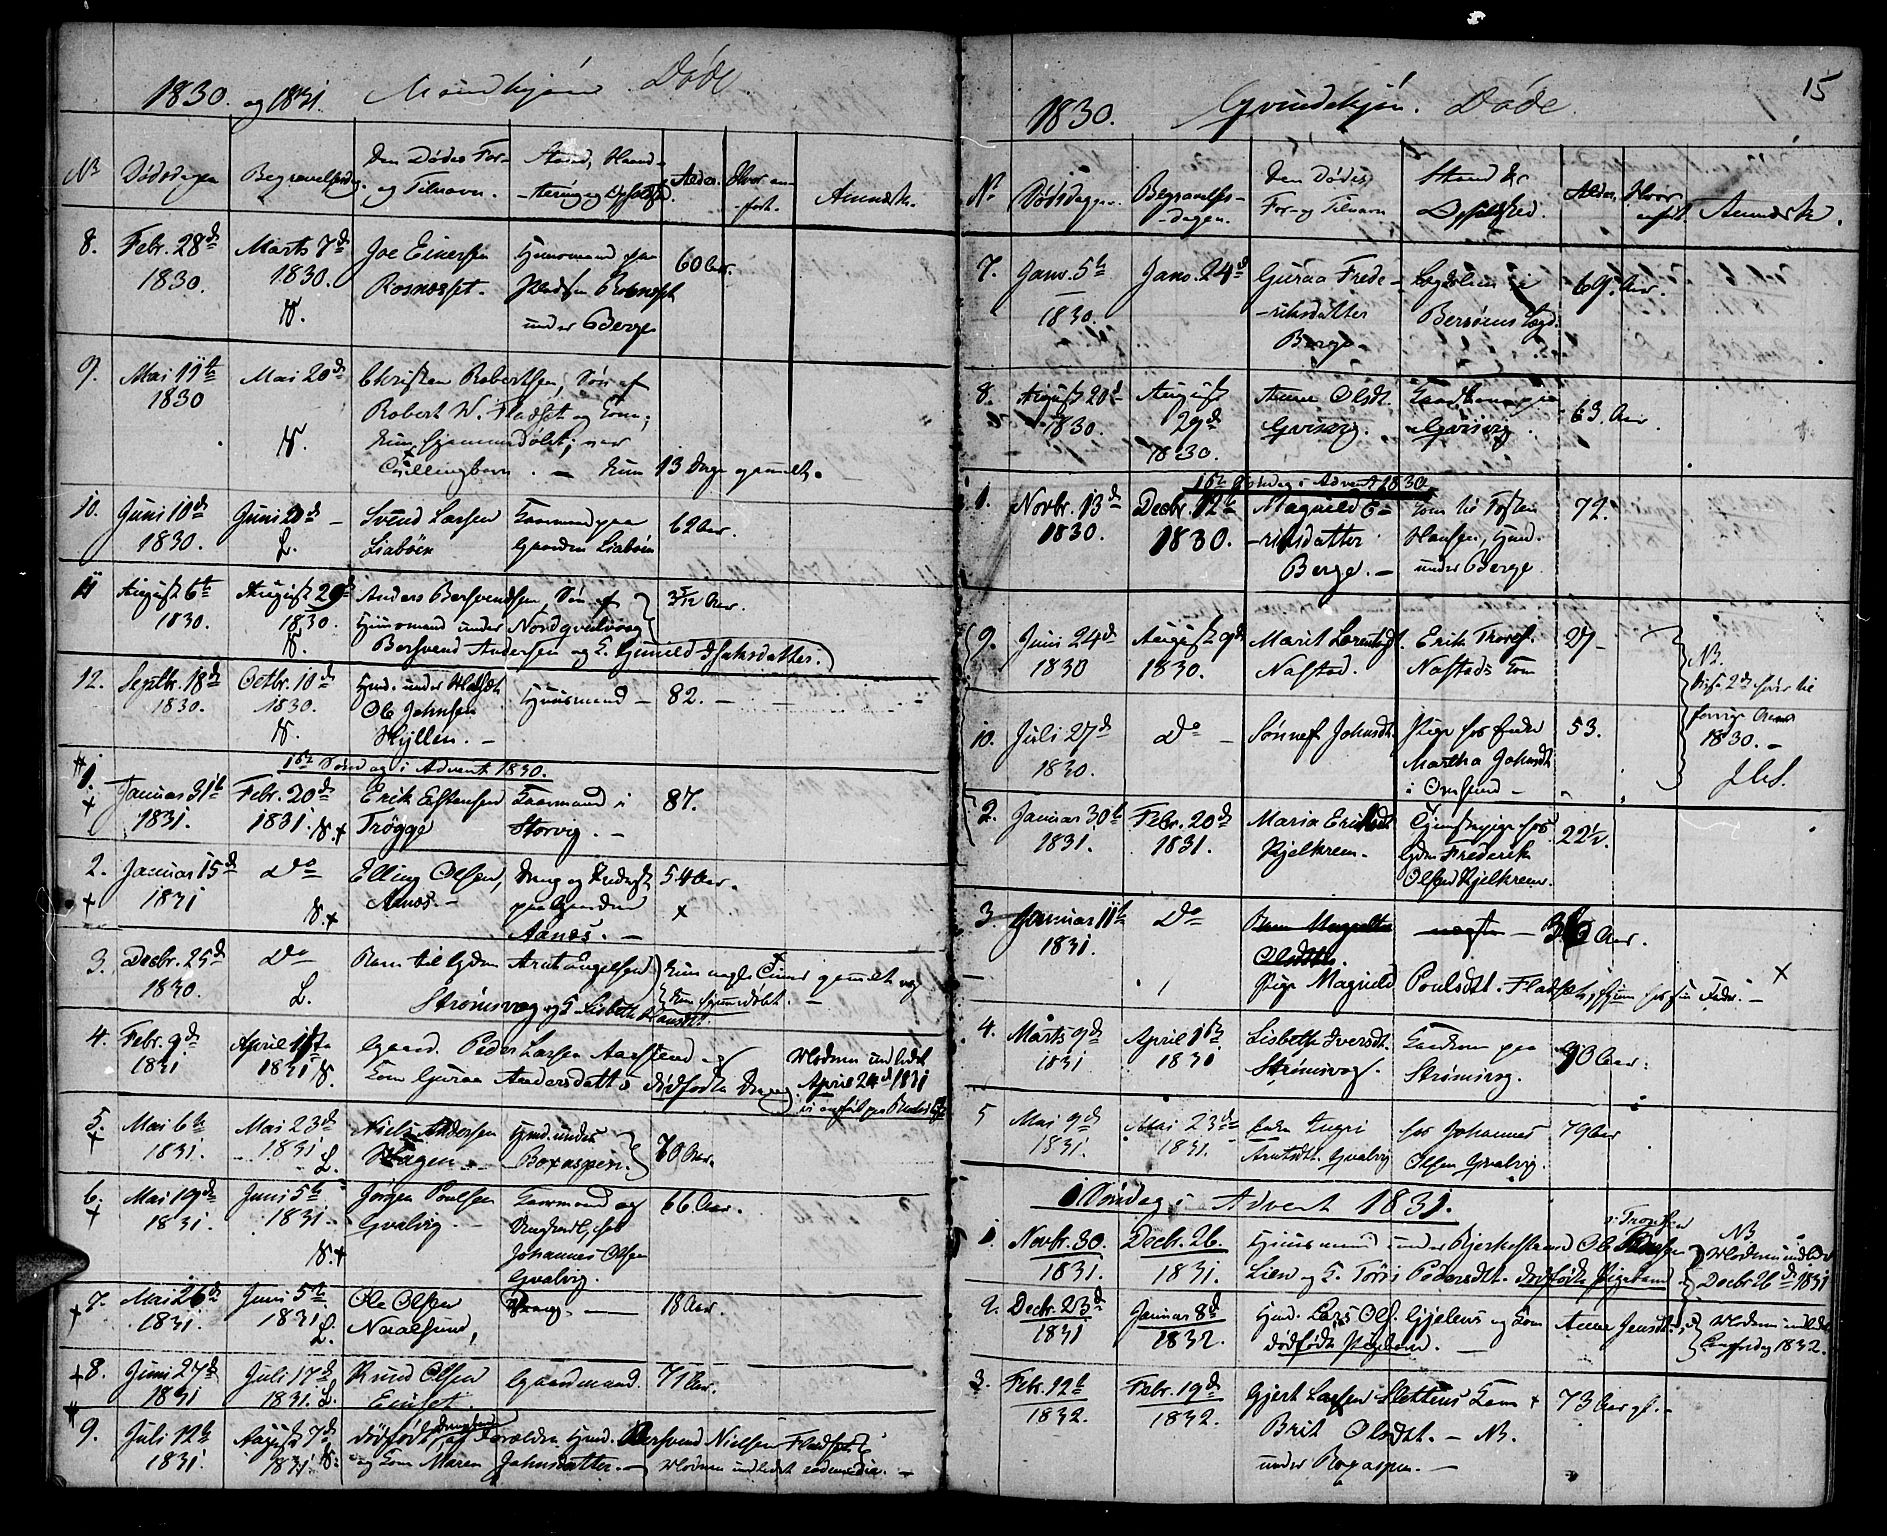 1830. og 1831. Mandkjøn Døde
No Dødsdagen Begravelsesdag. Den Dødes For- og Tilnavn. Stand, Haand- Alder. Hvor an- ført. Anmærk.
8. Febr. 28de 1830. Marts 7de 1830. N.
Joe Einersen Rosnæsset. Huusmand paa Pladsen Rosnæset under Berge 60 Aar.
9. Mai 11te 1830 Mai 20de N.
Christen Robertsen, Søn af
Robert N. Fladset og Kone;
kun hjemmedøbt; var
Tvillingbarn. — kun 13 Dage gammelt.
10. Juni 10de 1830. Juni 20de — L.
Svend Larsen Liabøen Gaarmand paa Gaarden Liabøen 62 Aar.
11 August 6te 1830. August 29de 1830. N.
Anders Bersvendsen, Søn af
Huusmand under Nordqvalvaag
Bersvend Andersen og K. Gunild Isaksdatter. 3 5/12 Aar.
12. Septbr. 18de 1830. Octbr. 10de 1830. N.
Huusd. under Ole Johnsen Hyllen. — Huusmand — 82. —
1ste Søndag i Advent 1830.
1. Januar 31te 1831. Febr. 20de 1831. N. +
Erik Estensen Trøgge Gaarmand i Storvig. — 87.
2. Januar 15de 1831 Do N. +
Elling Olsen, Aanæs. — Dreng og paa Gaarden Aanæs. — 54 Aar.
3. Decbr. 25de 1830. Do L.
Barn til Gdm. Arnt Engelsen
Strømsvog og K. Lisbeth Hansdt. kun nogle Timer gammelt og kun hjemmedøbt. —
4. Febr. 9de 1831 April 1ste 1831 N.
Gaard. Peder Larsen Aarsund og
Kone Guraa Andersdatters dødfødte Dreng
Moderen indledet April 24de 1831
5. Mai 6te 1831. Mai 23de 1831 L.
Niels Andersen Hagen. — Huusmd. under Boxaspen. 70 Aar.
6. Mai 19de 1831. Juni 5te 1831. N. +
Jørgen Poulsen Qvalvig. — Gaarmand og hos Johannes Olsen Qvalvig. 66 Aar.
7. Mai 26de 1831. Juni 5te 1831 L.
Ole Olsen Naalsund, Dreng. — 18 Aar
8. Juni 27de 1831 Juli 17de 1831. L.
Knud Olsen Einset. Gaardmand. 71 Aar.
9. Juli 12te 1831. August 7de 1831 N.
dødfødt Drengebarn, og Forældre Huusd. Bersvend Nielsen Fladset
og Kone Maren Johnsdatter. — Moderen indledet —
15
1830. Qvindekjøn. Døde
No Dødsdagen. Begravelses- dagen. Den Dødes For- og Tilnavn Stand & Alder. Hvor anført. Anmærk.
7. Janv. 5te 1830. Janv. 24de
Guraa Frede- riksdatter Berge. Lægdslem i Bersøens Lægd. 69. Aar.
8. August 20de 1830 August 29de 1830.
Anne Olsdt. Qvisvig. Gaardkone paa Qvisvig. 63. Aar
1ste Søndag i Advent 1830
1. Novbr. 13de 1830. Decbr. 12te 1830.
Magnild E- riksdatter Berge. — Kone til Torsten Hansen, Huusd. under Berge. 72.
9. Juni 24de 1830 August 9de 1830.
Marit Lorentsdt. Nastad. Erik Thores. Nastads Kone 27 —
NB. disse 2de hører til forrige Aar 1830. —
10. Juli 27de 1830. Do —
Sønnef Johnsdt. Pige hos Enke Martha Johnsdt. i Ormsund — 53.
2. Januar 30te 1831. Febr. 20de 1831.
Maria Eriksdt. Kjelkrem. Tjenestepige hos Gdm Frederik Olsen Kjelkrem. 22 1/2.
3. Januar 11te 1831. Do
Barn Magnilda Olsdtter. — 36 Aar.
Pige Magnild Poulsdt. Fladset, hjem hos sin Fader. —
4. Marts 9de 1831 April 1ste 1831
Lisbeth Iversdt. Strømsvog. Gaardkone paa Strømsvog. 90 Aar.
5 Mai 9de 1831. Mai 23de 1831.
Enke Ingri Arntsdt. Qvalvig hos Johannes Olsen Qvalvig. 79 Aar
1 Søndag i Advent 1831.
1. Novbr. 30. 1831. Decbr. 26. 1831.
Huusmand under Bjerkestrand Ole
Lien og K. Tøri Pedersdt. dødfødte Pigebarn
NB Moderen indledet Decbr. 26de 1831
2. Decbr. 23de 1831 Januar 8de 1832.
Huusd. Lars Ols. Gjelens og Kone Anne Jensdt.s
dødfødte Pigebarn. — Moderen indledet 1832.
3. Febr. 12te 1832. Febr. 19de 1832.
Gjert Larsen Slettens Kone +
Brit Olsdt. — NB.
under Boxaspen. — 73 Aar gl. —